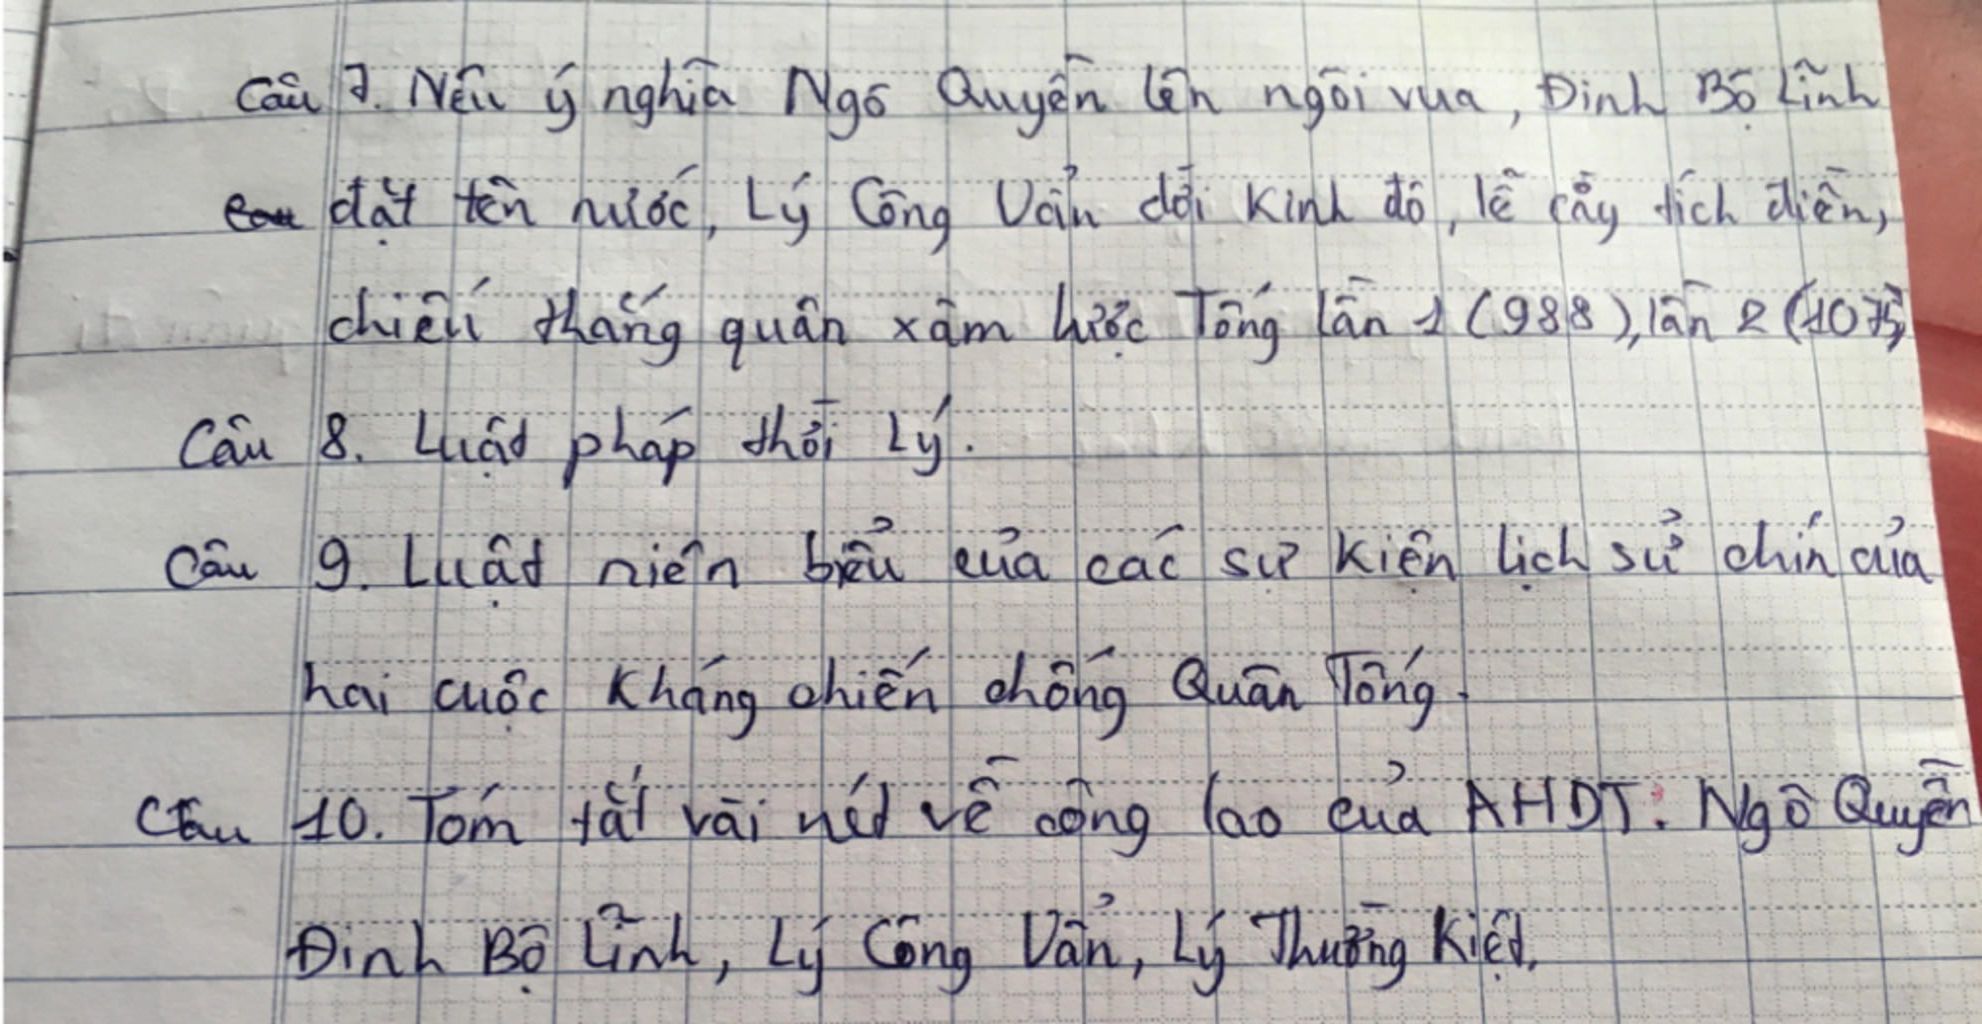 Câu 7. Nêu ý nghĩa Ngô Quyền lên ngôi vua, Đinh Bộ Lĩnh
đặt tên nước, Lý Công Uẩn dời kinh đô, lễ cầy tích điền,
chiến thắng quân xâm lược Tống lần 1 (988), lần 2 (1075)
Câu 8. Luật pháp thời Lý.
Câu 9. Luật niên biểu của các sự kiện lịch sử chín của
hai cuộc kháng chiến chống Quân Tống.
Câu 10. Tóm tắt vài nét về công lao của AHDT: Ngô Quyền
Đinh Bộ Lĩnh, Lý Công Uẩn, Lý Thường Kiệt.